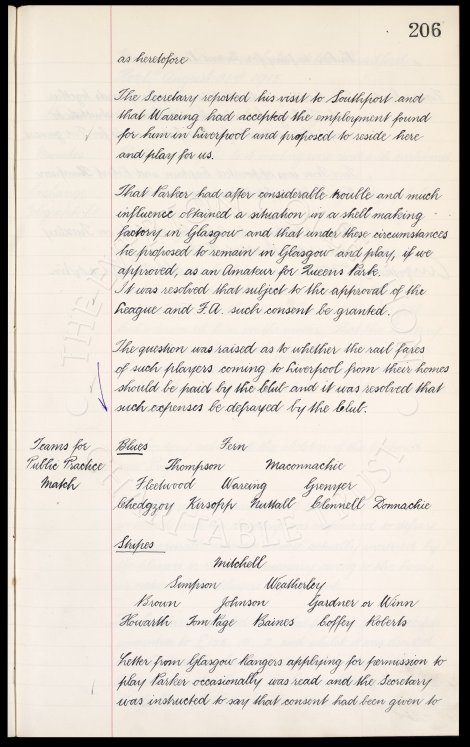 206
as heretofore
The Secretary reported his visit to Southport and
that Wareing had accepted the employment found
for him in Liverpool and proposed to reside here
and play for us.
That Parker had after considerable trouble and much
influence obtained a situation in a shell making
factory in Glasgow and that under these circumstances
he proposed to remain in Glasgow and play, if we
approved, as an Amateur for Queens Park.
It was resolved that subject to the approval of the
League and F.A. such consent be granted.
The question was raised as to whether the rail fares
of such players coming to Liverpool from their homes
should be paid by the Club and it was resolved that
such expenses be defrayed by the Club.
Teams for
Public Practice
Match
Blues Fern
Thompson Maconnachie
Fleetwood Wareing Grenyer
Chedgzoy Kirsopp Nuttall Clennell Donnachie
Stripes
Mitchell
Simpson Weatherley
Brown Johnson Gardner or Winn
Howarth Tom Page Baines Coffey Roberts
Letter from Glasgow Rangers applying for permission to
play Parker occasionally was read and the Secretary
was instructed to say that consent had been given to